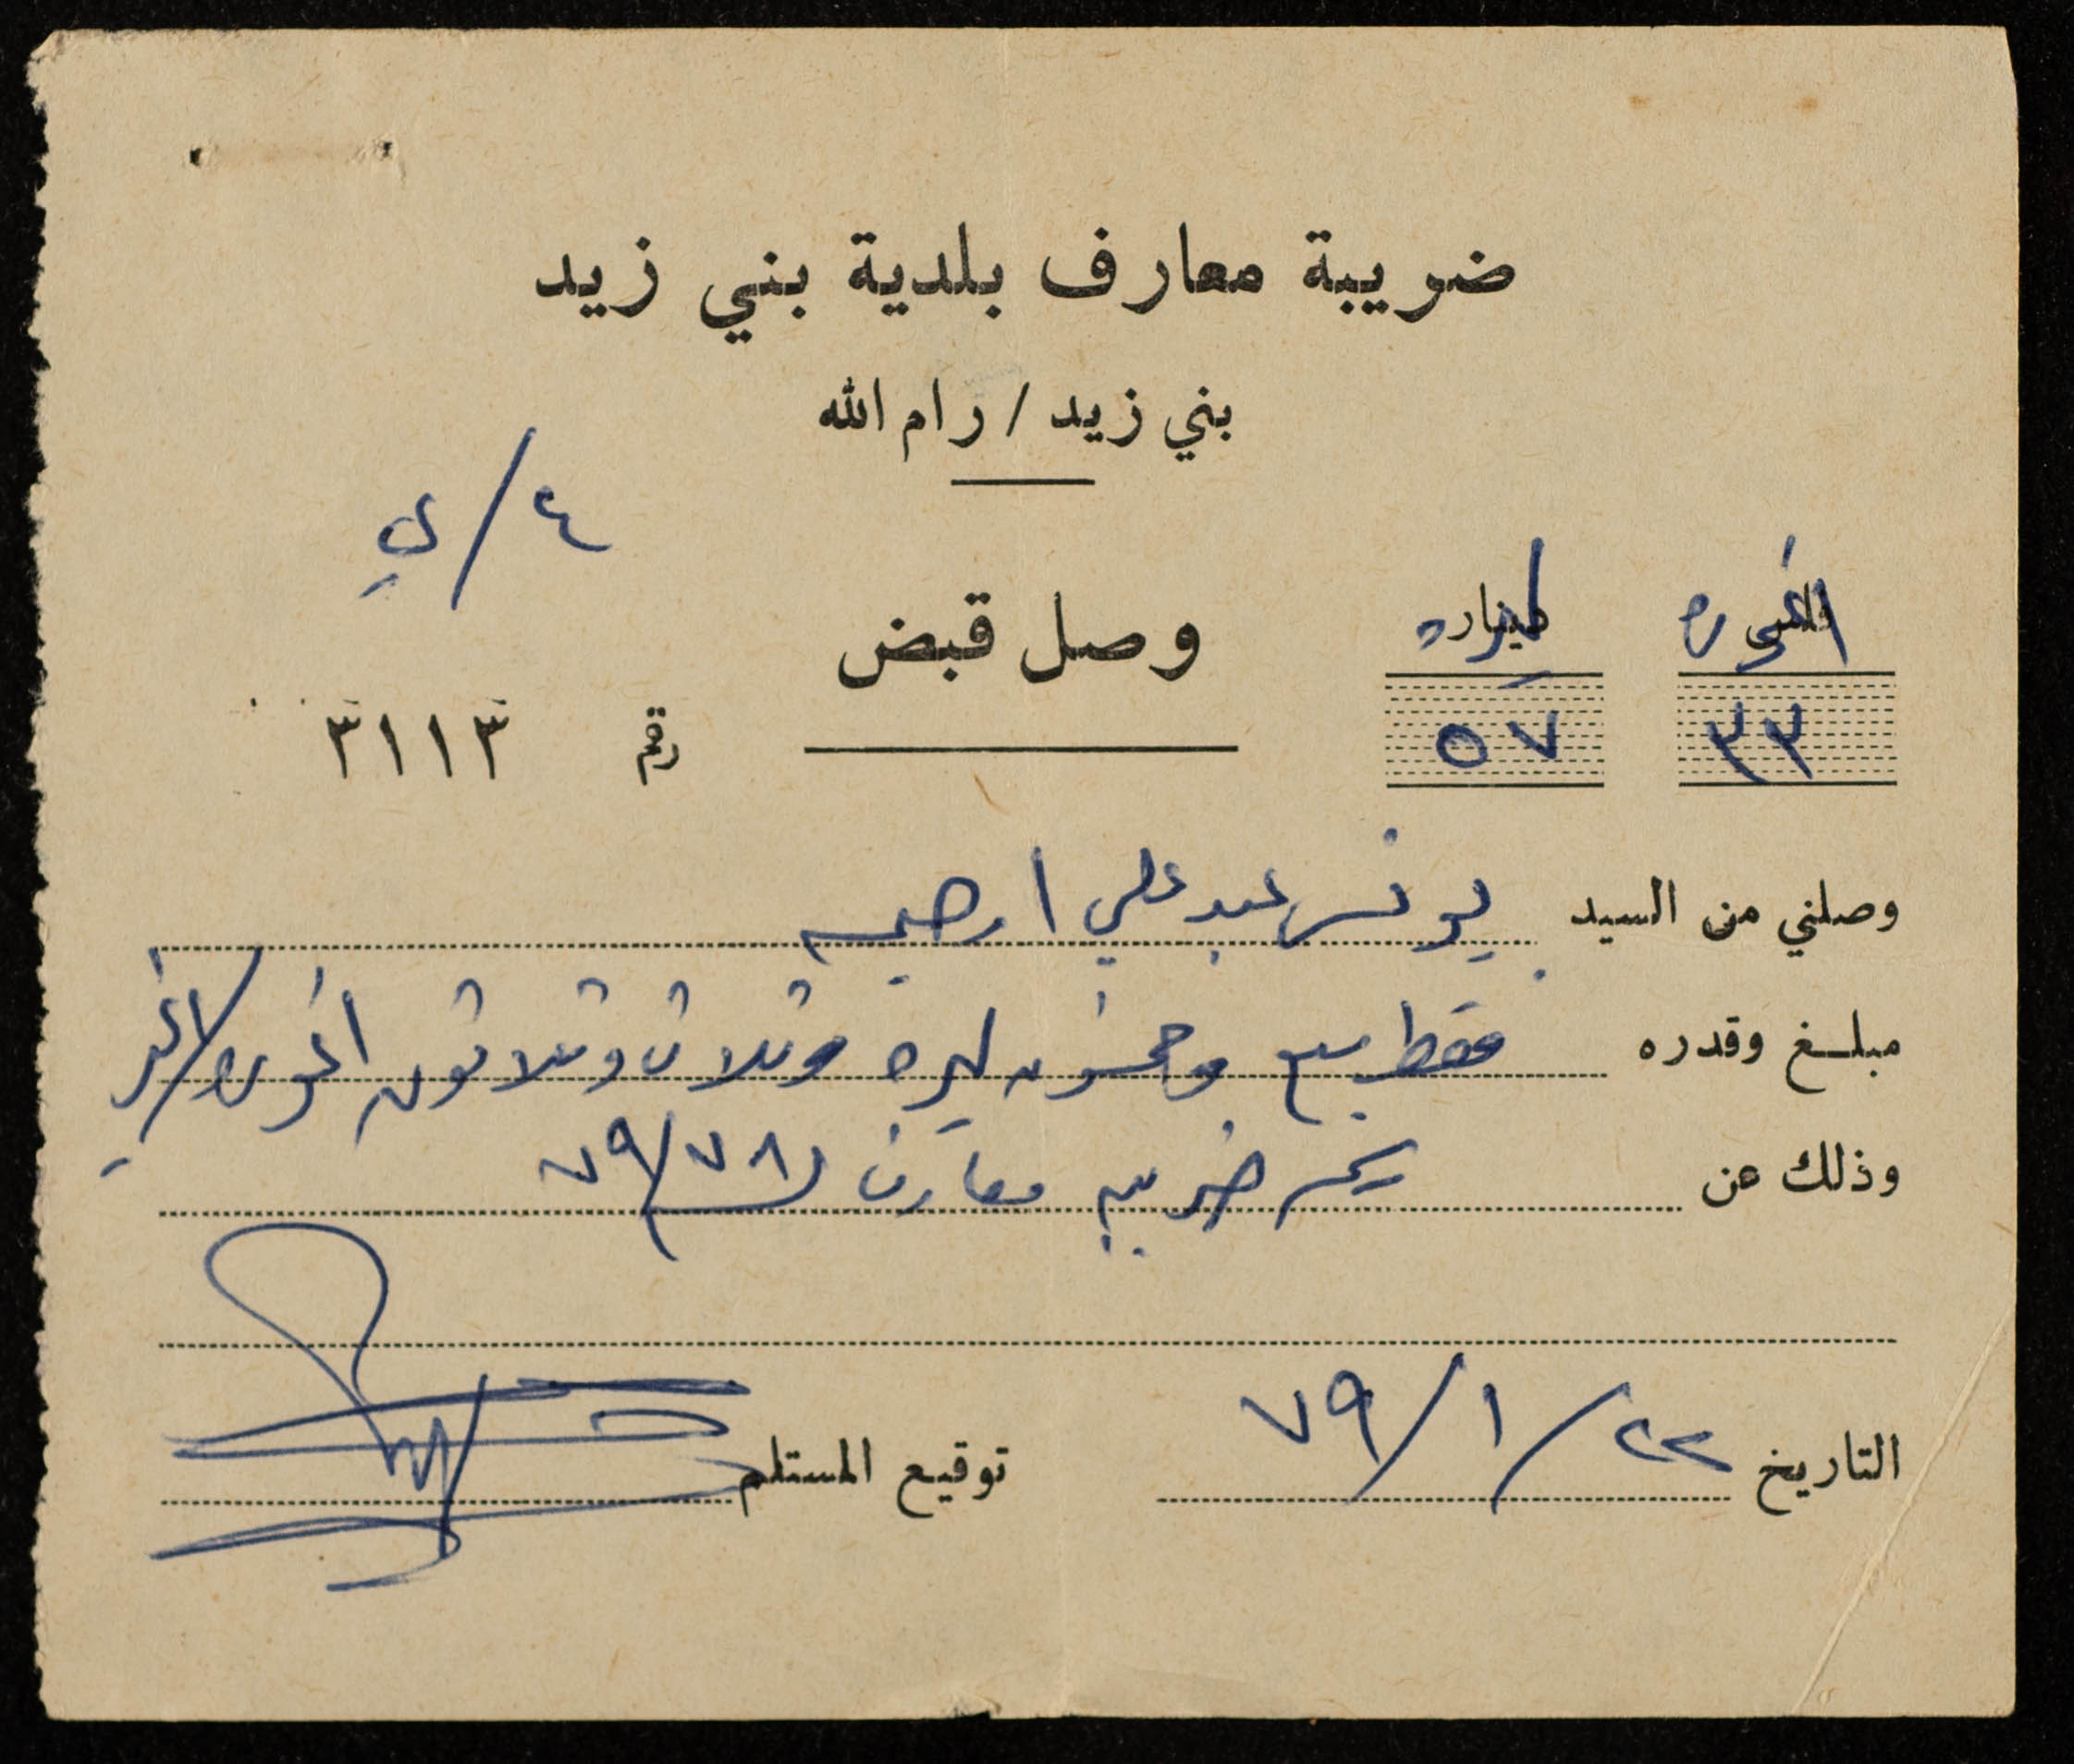 ضريبة معارف بلدية بني زيد
بني زيد / رام الله
٤/ي
اغورة ليرة
٣٣ ٥٧
وصل قبض
رقم ٣١١٣
وصلني من السيد يونس عبد علي ارحيم
مبلغ وقدره فقط سبع وخمسون ليره وثلاث وثلاثون اغوره لاغير
وذلك عن رسم ضريبه معارف ٧٩/٧٨
التاريخ ٧٩/١/٢٢ توقيع المستلم